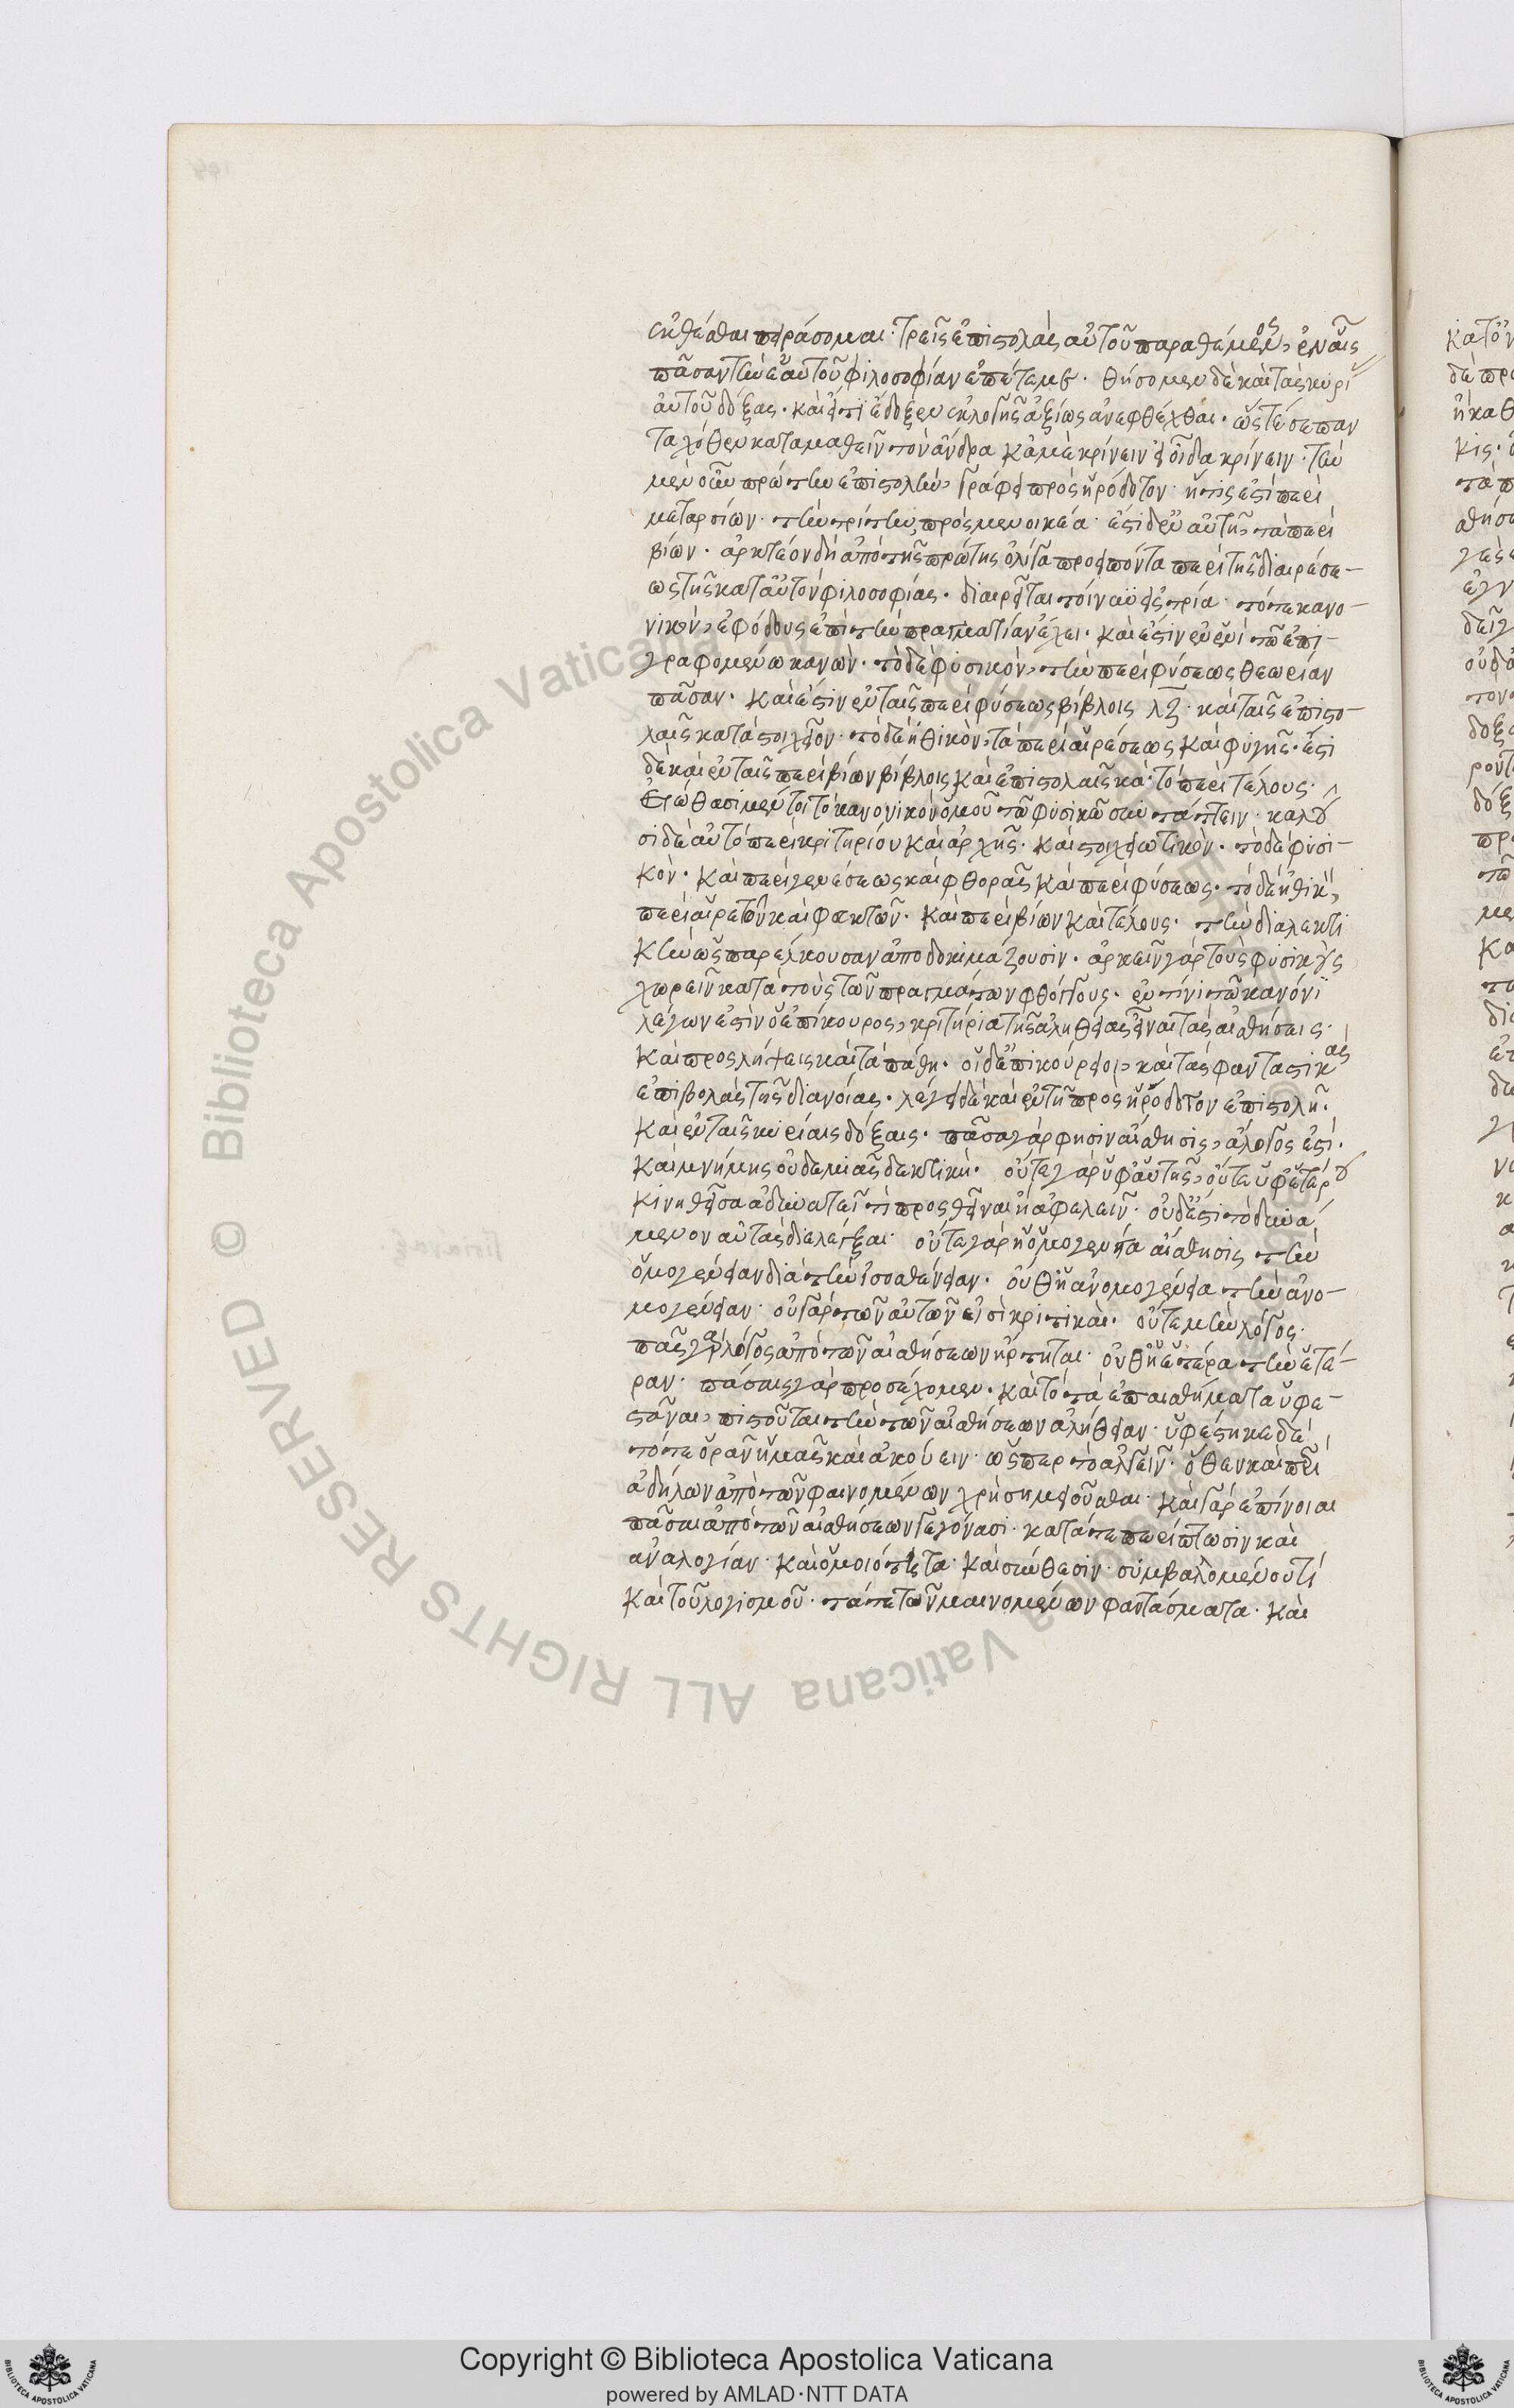 ἐκθέσθαι πειράσομαι· τρεῖς ἐπιστολὰς αὐτοῦ παραθέμενος, ἐν αἷς
πᾶσαν τὴν ἑαυτοῦ φιλοσοφίαν ἐπέτεμε. θήσομεν δὲ καὶ τὰς κυρίας
αὐτοῦ δόξας· καὶ εἴ τι ἔδοξεν ἐκλογῆς ἀξίως ἀνεφθέχθαι· ὥστέ σε παν
ταχόθεν καταμαθεῖν τὸν ἄνδρα κἀμὲ κρίνειν εἰ οἶδα κρίνειν. τὴν
μὲν οὖν πρώτην ἐπιστολὴν, γράφει πρὸς ἡρόδοτον· ἥτις ἐστὶ περὶ
μεταρσίων· τὴν τρίτην, πρὸς μενοικέα· ἔστι δ' ἐν αὐτῇ, τὰ περὶ
βίων· ἀρκτέον δὴ ἀπὸ τῆς πρώτης ὀλίγα προειπόντα περὶ τῆς διαιρέσε-
ως τῆς κατ' αὐτὸν φιλοσοφίας· διαιρεῖται τοίνυν εἰς τρία· τό τε κανο-
νικόν, ἐφόδους ἐπὶ τὴν πραγματίαν ἔχει· καὶ ἔστιν ἐν ἑνὶ τῷ ἐπι-
γραφομένω κανὼν· τὸ δὲ φυσικόν, τὴν περὶ φύσεως θεωρίαν
πᾶσαν· καὶ ἔστιν ἐν ταῖς περὶ φύσεως βίβλοις λζ· καὶ ταῖς ἐπιστο-
λαῖς κατὰ στοιχεῖον· τὸ δὲ ἠθικὸν, τὰ περὶ αἱρέσεως καὶ φυγῆς· ἔστι
δὲ καὶ ἐν ταῖς περὶ βίων βίβλοις καὶ ἐπιστολαῖς κα· τὸ περὶ τέλους·
Εἰώθασι μέντοι τὸ κανονικὸν ὁμοῦ τῶ φυσικῶ συντάττειν· καλοῦ
σι δὲ αὐτὸ περὶ κριτηρίου καὶ ἀρχῆς· καὶ στοιχειωτικὸν· τὸ δὲ φυσι-
κὸν· καὶ περὶ γενέσεως καὶ φθορᾶς καὶ περὶ φύσεως· τὸ δὲ ἠθικὸν,
περὶ αἱρετῶν καὶ φευκτῶν· καὶ περὶ βίων καὶ τέλους· τὴν διαλεκτι
κὴν ὡς παρέλκουσαν ἀποδοκιμάζουσιν· ἀρκεῖν γὰρ τοὺς φυσικοὺς
χωρεῖν κατὰ τοὺς τῶν πραγμάτων φθόγγους· ἐν τίνι τῶ κανόνι
λέγων ἐστὶν ὁ ἐπίκουρος, κριτήρια τῆς ἀληθείας εἶναι τὰς αἰσθήσεις·
καὶ προσλήψεις καὶ τὰ πάθη· οἱ δ' ἐπικούρειοι, καὶ τὰς φανταστικὰς
ἐπιβολὰς τῆς διανοίας· λέγει δὲ καὶ ἐν τῇ πρὸς ἡρόδοτον ἐπιστολῇ·
καὶ ἐν ταῖς κυρίαις δόξαις· πᾶσα γάρ φησιν αἴσθησις, ἄλογός ἐστι·
καὶ μνήμης οὐδεμιᾶς δεκτική· οὔτε γὰρ ὑφ' αὑτῆς, οὔτε ὑφ' ἑτέρου
κινηθεῖσα δύναταί τι προσθεῖναι ἢ ἀφελεῖν· οὐδέ ἐστι τὸ δυνά
μενον αὐτὰς διελέγξαι· οὔτε γὰρ ἡ ὁμογενεία αἴσθησις τὴν
ὁμογένειαν διὰ τὴν ἰσοσθένειαν· οὔθ' ἡ ἀνομογένεια τὴν ἀνο-
μογένειαν· οὐ γὰρ τῶν αὐτῶν εἰσὶ κριτικαί· οὔτε μὴν λόγος·
πᾶς γὰρ λόγος ἀπὸ τῶν αἰσθήσεων ἤρτηται· οὔθ' ἡ ἑτέρα τὴν ἑτέ-
ραν· πάσαις γὰρ προσέχομεν· καὶ τὸ τὰ ἐπαισθήματα ὑφε-
στᾶναι, πιστοῦται τὴν τῶν αἰσθήσεων ἀλήθειαν· ὑφέστηκε δὲ
τό τε ὁρᾶν ἡμᾶς καὶ ἀκούειν· ὥσπερ τὸ ἀλγεῖν· ὅθεν καὶ περὶ
ἀδήλων ἀπὸ τῶν φαινομένων χρὴ σημειοῦσθαι· καὶ γὰρ ἐπίνοιαι
πᾶσαι ἀπὸ τῶν αἰσθήσεων γεγόνασι· κατά τε περίπτωσιν καὶ
ἀναλογίαν· καὶ ὁμοιότητα· καὶ σύνθεσιν· συμβαλλομένου τι
καὶ τοῦ λογισμοῦ· τά τε τῶν μαινομένων φαντάσματα· καὶ
Copyright © Biblioteca Apostolica Vaticana
powered by AMLAD·NTT DATA